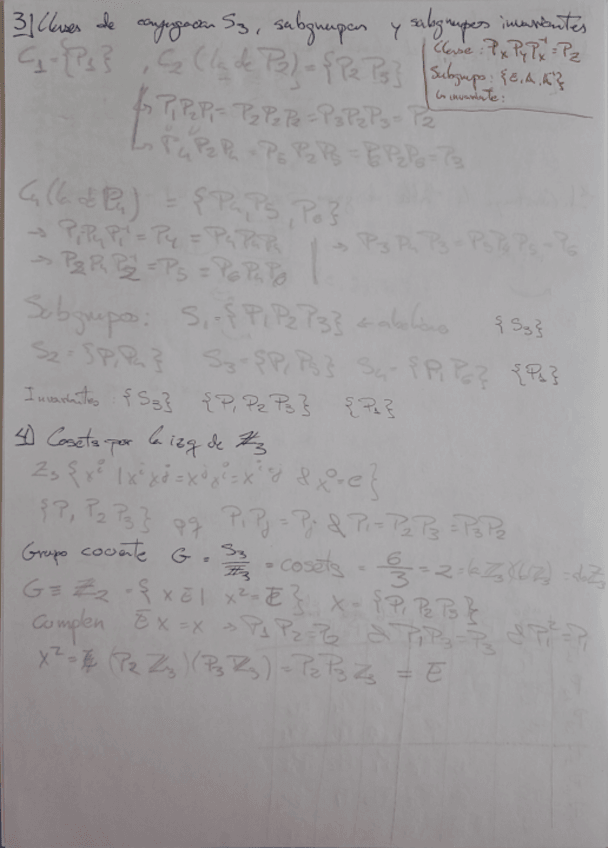 3] Clases de conjugación S₃, subgrupos y subgrupos invariantes
Clase: PₓP_yPₓ⁻¹ = P₂
Subgrupo: {E, A, A⁻¹}
Invariante:
C₁ = {P₁}, C₂ (la de P₂) = {P₂ P₃}
↳ P₁P₂P₁ = P₂P₂P₂ = P₃P₂P₃ = P₂
↳ P₄P₂P₄ = P₅P₂P₅ = P₆P₂P₆ = P₃
C₄ (la de P₄) = {P₄, P₅, P₆}
→ P₁P₄P₁⁻¹ = P₄ = P₄P₄P₄ → P₃P₄P₃ = P₅P₄P₅ = P₆
→ P₂P₄P₂⁻¹ = P₅ = P₆P₄P₆
Subgrupos: S₁ = {P₁P₂P₃} ← abeliano {S₃}
S₂ = {P₁P₄} S₃ = {P₁P₅} S₄ = {P₁P₆} {P₁}
Invariantes: {S₃} {P₁P₂P₃} {P₁}
4] Cosets por la izq de Z₃
Z₃ {xⁱ | xⁱxʲ = xʲxⁱ = & x⁰ = e}
{P₁ P₂ P₃} pq P₁Pⱼ = Pⱼ & P₁ = P₂P₃ = P₃P₂
Grupo cociente G = S₃/Z₃ = cosets = 6/3 = 2
G ≡ Z₂ = {x E | x² = E} x = {P₁ P₂ P₃}
Cumplen E x = x → P₁P₂ = P₂ & P₁P₃ = P₃ & P₁² = P₁
x² = (P₂ Z₃)(P₃ Z₃) = P₂P₃Z₃ = E